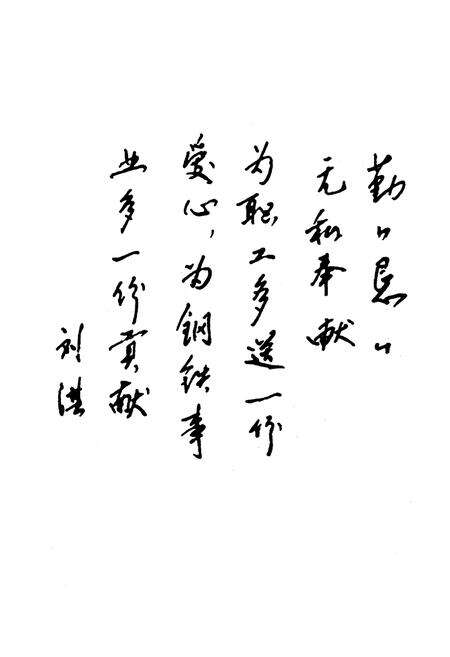 勤〃恳〃
无私奉献
为职工多送一份
爱心，为钢铁事
业多一份贡献
刘淇